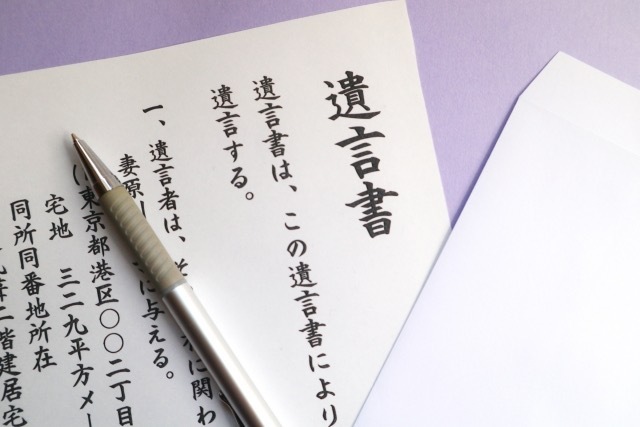 遺言書
遺言書は、この遺言書により
遺言する。
一、遺言者は、 に関わ
妻原 に与える。
(東京都港区〇〇二丁目
宅地 三二九平方メー
同所同番地所在
葺二階建居宅